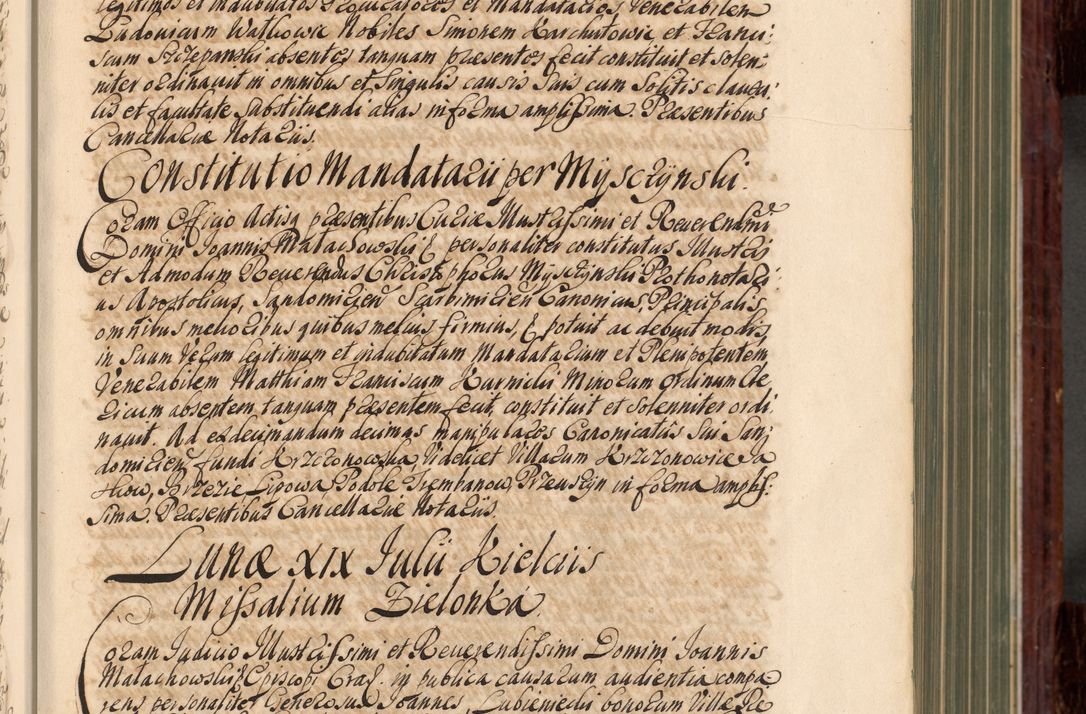 legitimos et indubitatos Procuratores et Mandatarios Venerabilem
Ludovicum Watkowic Nobiles Simonem Karchutowic et Franci:
scum Szczepanski absentes tanquam præsentes fecit constituit et solen:
niter ordinavit in omnibus et singulis causis suis cum solitis clausu:
lis et facultate substituendi alias in forma amplissima. Præsentibus
Cancellariæ Notariis.
Constitutio Mandatarii per Mysczynski.
Coram Officio Actisq præsentibus Curiæ Illustrissimi et Reverendmi
Domini Joannis Małachowski & personaliter constitutus Illustris
et Admodum Reverendus Christophorus Mysczynski Prothonotari:
us Apostolicus, Sandomirien Scarbimirien Canonicus, Principalis,
omnibus melioribus quibus melius firmius, & potuit ac debuit modis,
in suum verum legitimum et indubitatum Mandatarium et Plenipotentem
Venerabilem Matthiam Franciscum Karnicki Minorum Ordinum Cle
ricum absentem, tanquam præsentem fecit, constituit et solenniter ordi:
navit. Ad exdecimandum decimas manipulares Canonicatûs Sui San:
domirien fundi Krzczonowska, Videlicet Villarum Krzczonowice Ja
Brzezie Lipowa, Podole Trembanow, in forma amplis:
sima. Præsentibus Cancellariæ Notariis.
Lunæ XIX Julii Kielciis
Missalium Zielonka.
Coram Judicio Illustrissimi et Reverendissimi Domini Joannis
Małachowski Episcopi Crac. in publica causarum audientia compa
rens personaliter Generosus Joannes, Lubieniecki bonorum Villæ